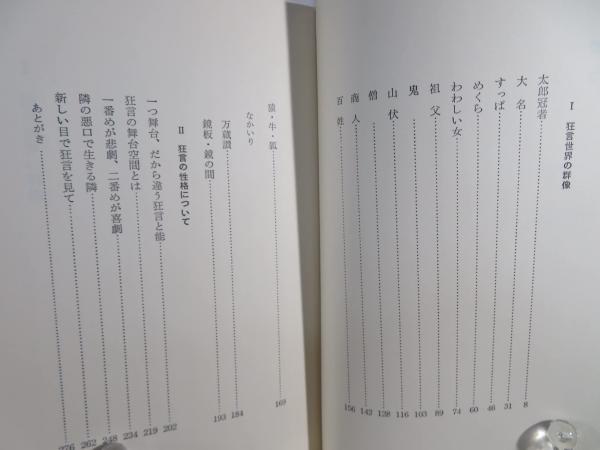 I 狂言世界の群像
太郎冠者 8
大名 31
すっぱ 46
めくら 60
わわしい女 74
祖父 89
鬼 103
山伏 116
僧 128
商人 142
百姓 156
猿・牛・狐 169
なかいり
万蔵讃 184
鏡板・鏡の間 193
II 狂言の性格について
一つ舞台、だから違う狂言と能 202
狂言の舞台空間とは 219
一番めが悲劇、二番めが喜劇 234
隣の悪口で生きる隣 248
新しい目で狂言を見て 262
あとがき 276